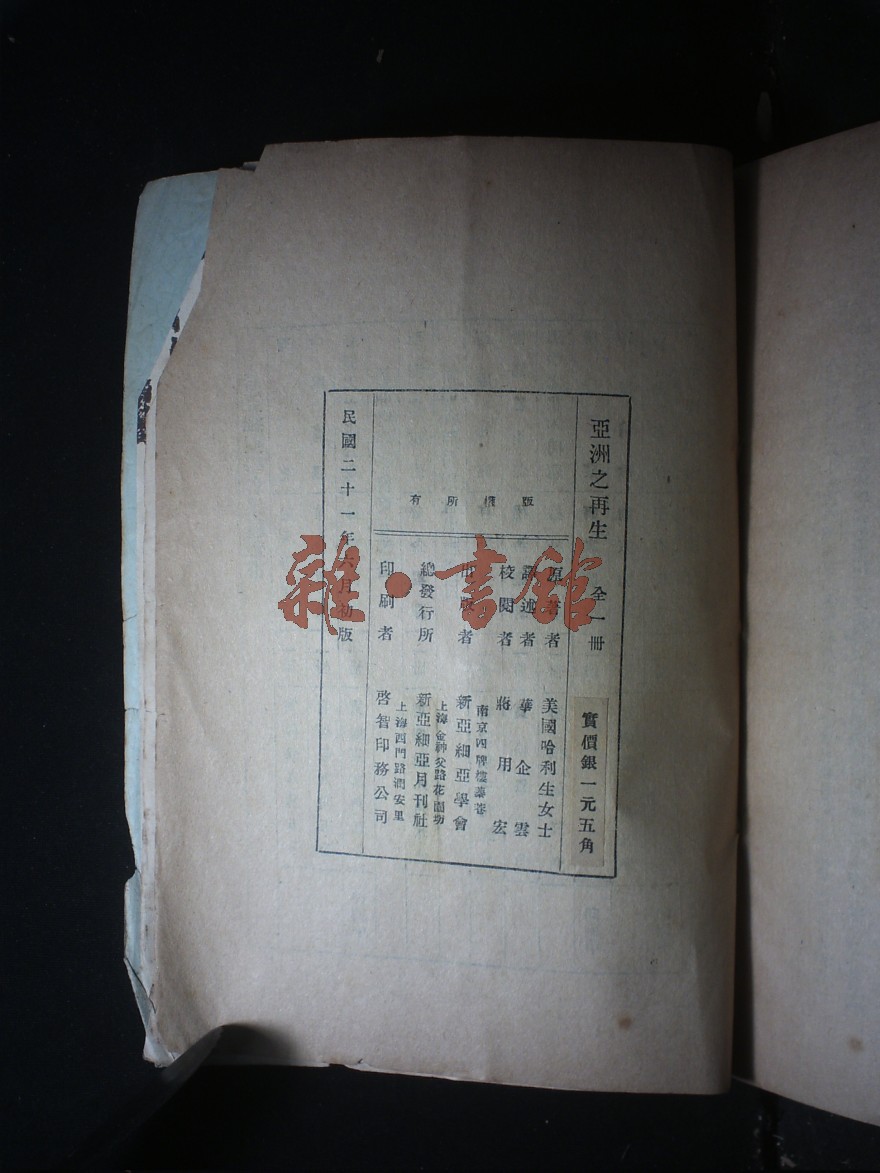 亞洲之再生　全一冊
實價銀一元五角
版權所有
原著者　美國哈利生女士
譯述者　華企雲
校閱者　蔣用宏
南京四牌樓蓁巷
出版者　新亞細亞學會
上海金神父路花園坊
總發行所　新亞細亞月刊社
上海西門路潤安里
印刷者　啓智印務公司
民國二十一年六月初版
雜·書館